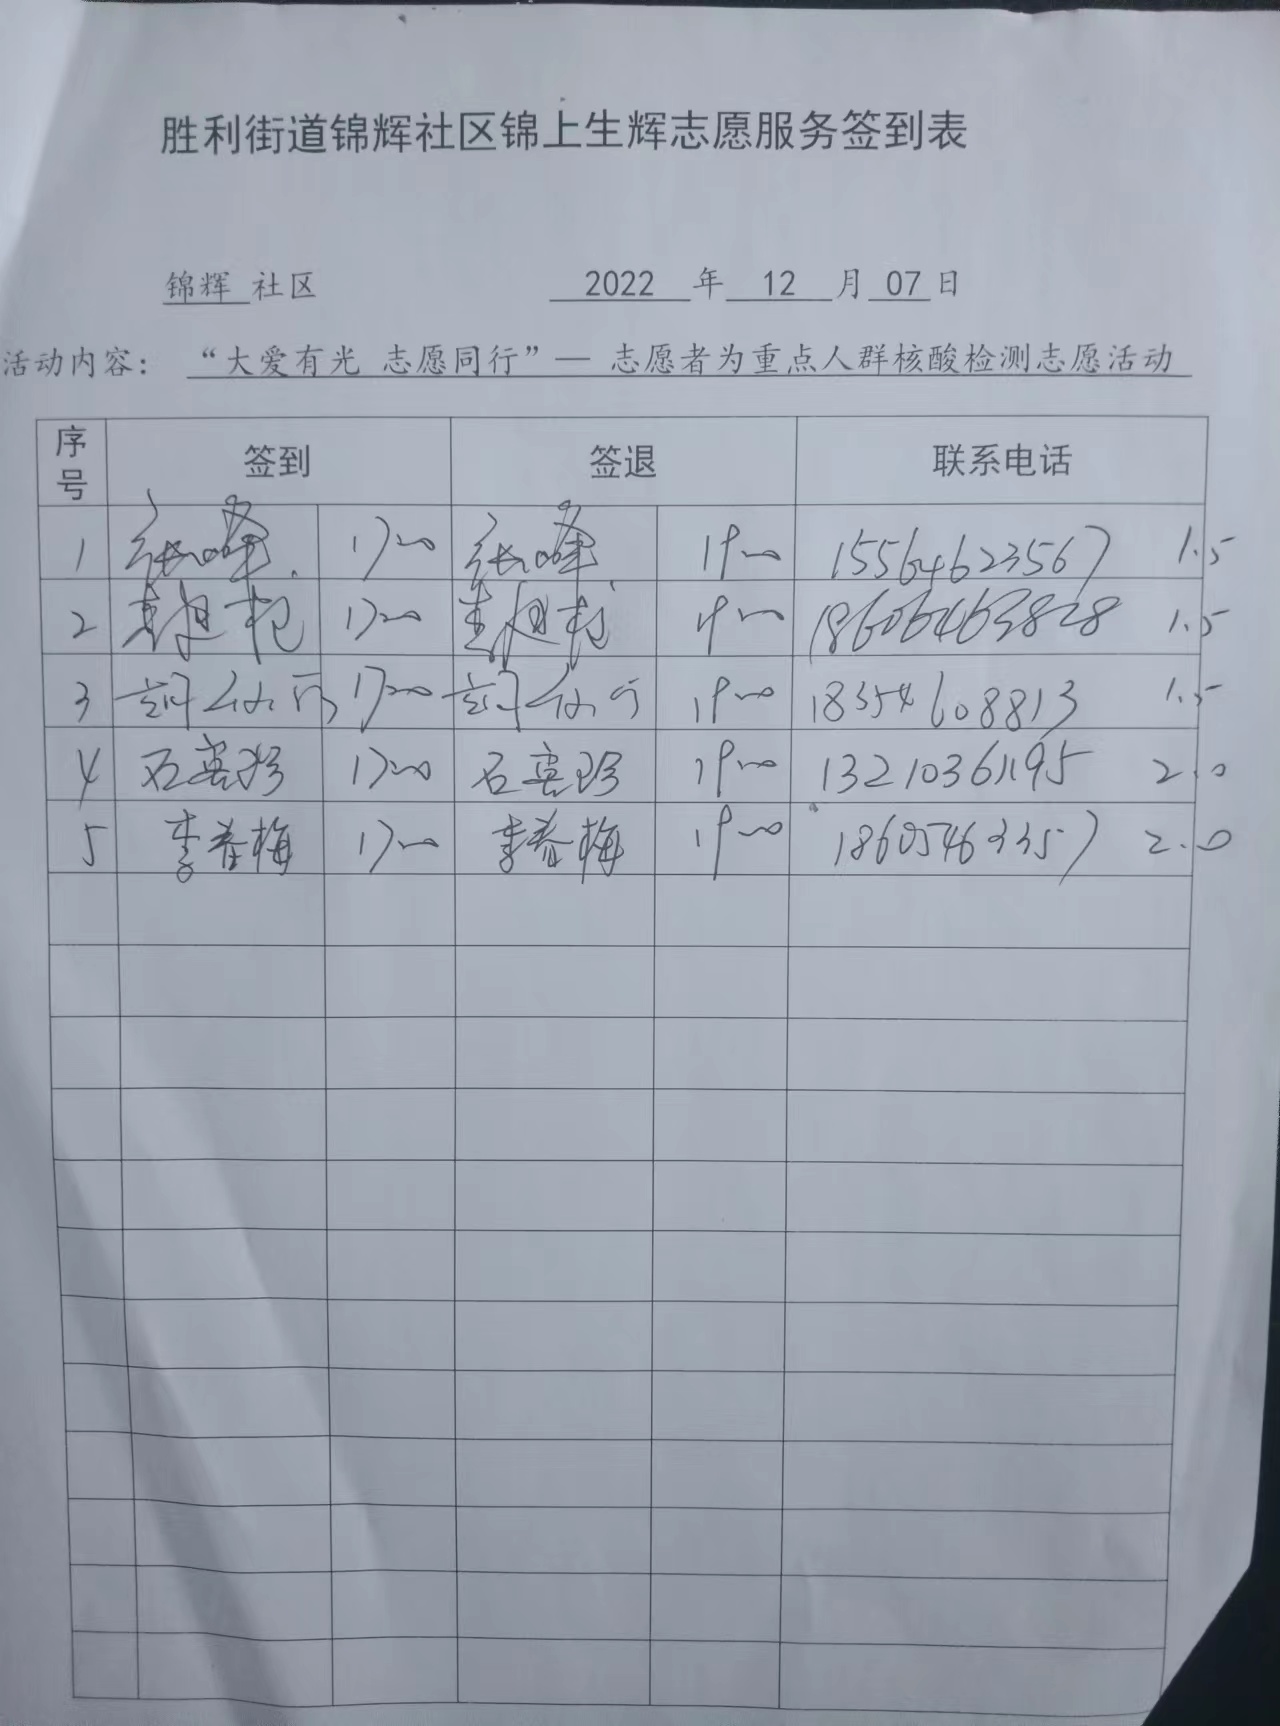 胜利街道锦辉社区锦上生辉志愿服务签到表
锦辉 社区 2022 年 12 月 07 日
活动内容： “大爱有光 志愿同行”— 志愿者为重点人群核酸检测志愿活动
序号 签到 签退 联系电话
1 张峰 17:00 张峰 19:00 15564623567 1.5
2 17:00 19:00 18606463828 1.5
3 17:00 19:00 18354608813 1.5
4 石英珍 17:00 石英珍 19:00 13210361195 2.0
5 李春梅 17:00 李春梅 19:00 18605463357 2.0